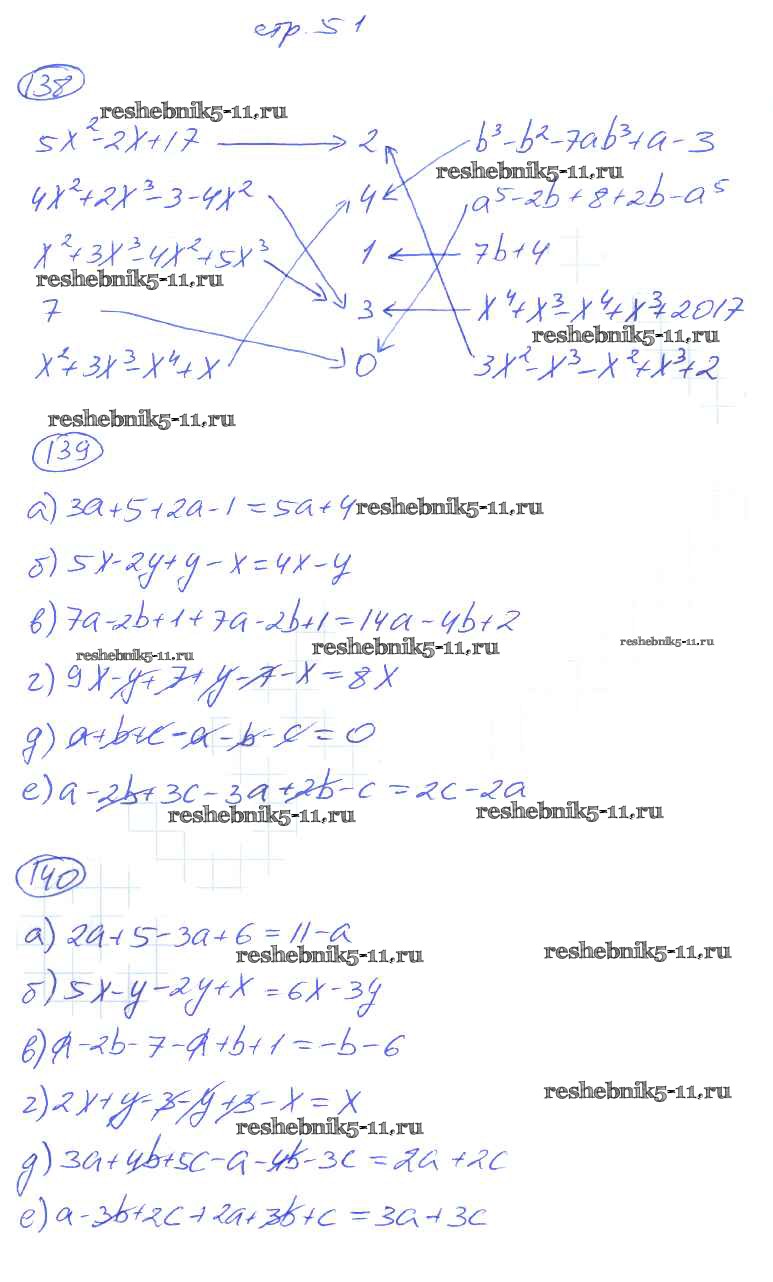 стр. 51
138
reshebnik5-11.ru
5x²-2x+17 → 2 b³-b²-7ab³+a-3
reshebnik5-11.ru
4x²+2x³-3-4x² 4 a⁵-2b+8+2b-a⁵
x²+3x³-4x²+5x³ 1 ← 7b+4
reshebnik5-11.ru
7 3 ← x⁴+x³-x⁴+x³+2017
reshebnik5-11.ru
x²+3x³-x⁴+x 0 3x²-x³-x²+x³+2
reshebnik5-11.ru
139
а) 3a+5+2a-1=5a+4 reshebnik5-11.ru
б) 5x-2y+y-x=4x-y
в) 7a-2b+1+7a-2b+1=14a-4b+2
reshebnik5-11.ru reshebnik5-11.ru reshebnik5-11.ru
г) 9x-y+7+y-7-x=8x
д) a+b+c-a-b-c=0
е) a-2b+3c-3a+2b-c=2c-2a
reshebnik5-11.ru reshebnik5-11.ru
140
а) 2a+5-3a+6=11-a
reshebnik5-11.ru reshebnik5-11.ru
б) 5x-y-2y+x=6x-3y
в) a-2b-7-a+b+1=-b-6
г) 2x+y-3-y+3-x=x
reshebnik5-11.ru reshebnik5-11.ru
д) 3a+4b+5c-a-4b-3c=2a+2c
е) a-3b+2c+2a+3b+c=3a+3c